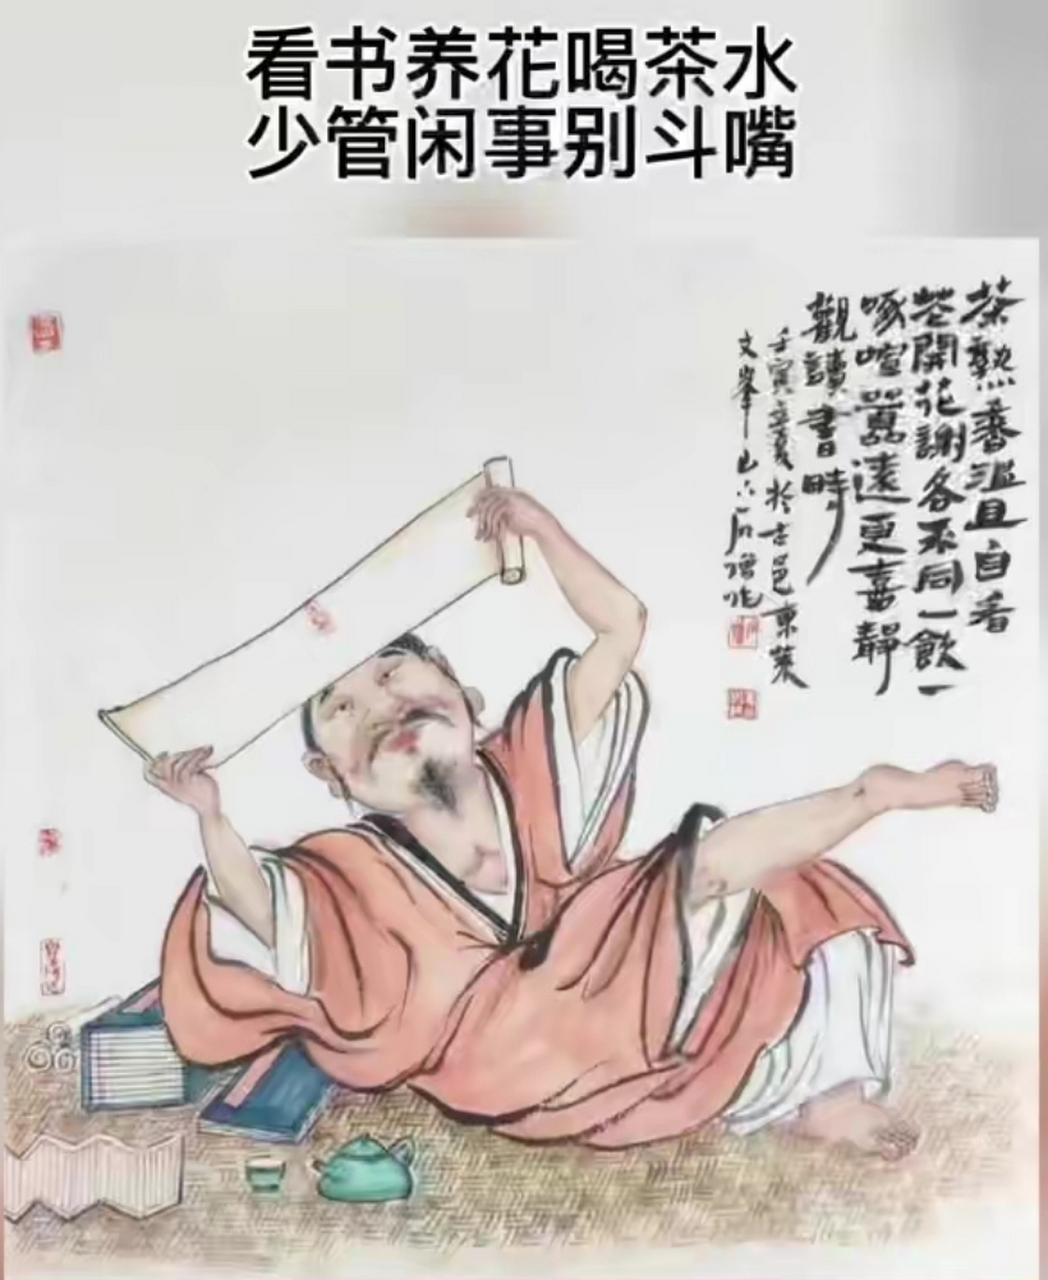 看书养花喝茶水
少管闲事别斗嘴
茶熟香温且自看
花開花謝各不同一飲一
啄喧囂遠更喜靜
觀讀書時
壬寅夏於古邑東萊
文峯山石僧作